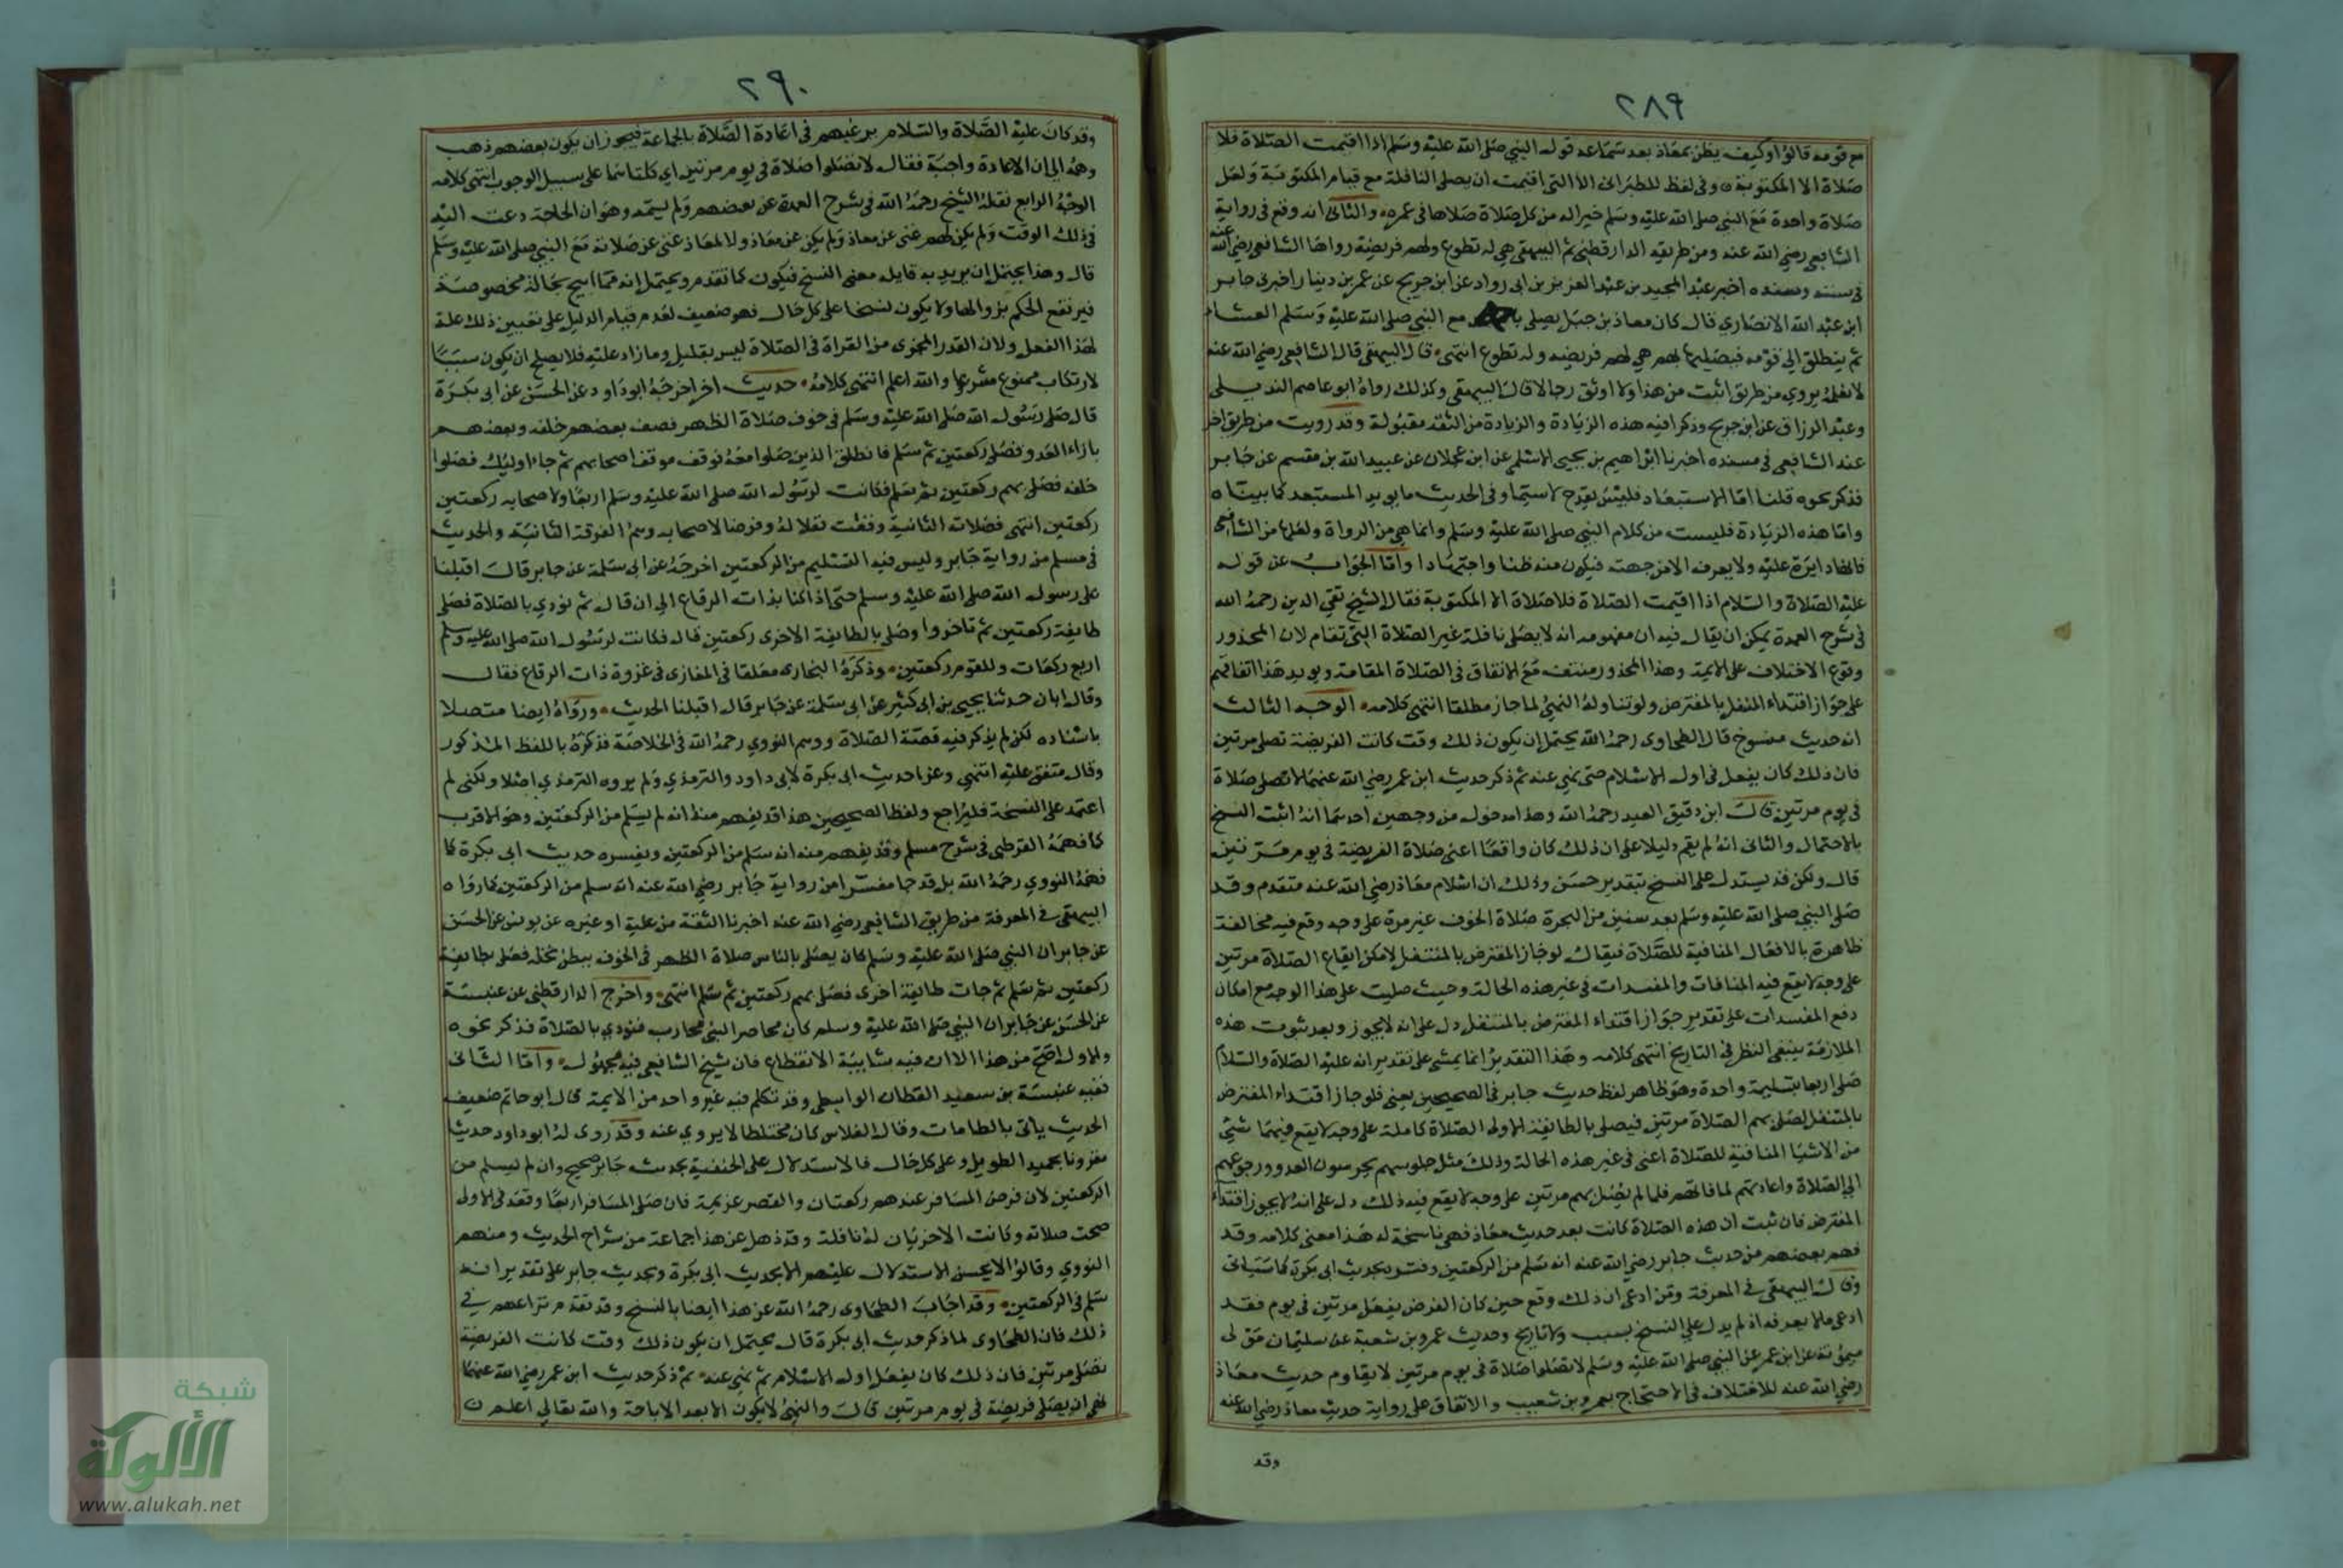 ٢٨٩
مع قومه قالوا وكيف يظن بمعاذ بعد سماعه قول النبي صلى الله عليه وسلم اذا اقيمت الصلاة فلا
صلاة الا المكتوبة وفي لفظ للطبراني الا التي اقيمت ان يصلي النافلة مع قيام المكتوبة ولعل
صلاة واحدة مع النبي صلى الله عليه وسلم خير له من كل صلاة صلاها في عمره والثاني انه وقع في رواية
الشافعي رضي الله عنه ومن طريقه الدارقطني ثم البيهقي هي له تطوع ولهم فريضة رواها الشافعي رضي الله عنه
في سننه ومسنده اخبر عبد المجيد بن عبد العزيز بن ابي رواد عن ابن جريج عن عمر بن دينار اخبرني جابر
ابن عبد الله الانصاري قال كان معاذ بن جبل يصلي مع النبي صلى الله عليه وسلم العشاء
ثم ينطلق الى قومه فيصليها لهم هي لهم فريضه وله تطوع انتهى قال البيهقي قال الشافعي رضي الله عنه
لا نعلمه يروي من طريق اثبت من هذا ولا اوثق رجالا قال البيهقي وكذلك رواه ابو عاصم النبيل
وعبد الرزاق عن ابن جريج وذكرا فيه هذه الزيادة والزيادة من الثقة مقبولة وقد رويت من طريق اخر
عند الشافعي في مسنده اخبرنا ابراهيم بن يحيى الاسلمي عن ابن عجلان عن عبيد الله بن مقسم عن جابر
فذكر نحوه قلنا اما الاستبعاد فليس بقدح لا سيما وفي الحديث ما يويد المستبعد كما بيناه
واما هذه الزيادة فليست من كلام النبي صلى الله عليه وسلم وانما هي من الرواة ولعلها من الشافعي
فانها دايرة عليه ولا يعرف الا من جهته فيكون منه ظنا واجتهادا واما الجواب عن قوله
عليه الصلاة والسلام اذا اقيمت الصلاة فلا صلاة الا المكتوبة فقال الشيخ تقي الدين رحمه الله
في شرح العمدة يمكن ان يقال فيه ان مفهومه انه لا يصلي نافلة غير الصلاة التي تقام لان المحذور
وقوع الاختلاف على الايمة وهذا المحذور منتف مع الاتفاق في الصلاة المقامة ويويد هذا اتفاقهم
على جواز اقتداء المتنفل بالمفترض ولو تناوله النهي لما جاز مطلقا انتهى كلامه الوجه الثالث
انه حديث منسوخ قال الطحاوي رحمه الله يحتمل ان يكون ذلك وقت كانت الفريضة تصلى مرتين
فان ذلك كان يفعل في اول الاسلام حتى نهي عنه ثم ذكر حديث ابن عمر رضي الله عنهما لا تصلى صلاة
في يوم مرتين قال ابن دقيق العيد رحمه الله وهذا مدخول من وجهين احدهما انه اثبت النسخ
بالاحتمال والثاني انه لم يقم دليلا على ان ذلك كان واقعا اعني صلاة الفريضة في يوم مرتين
قال ولكن قد يستدل على النسخ بتقدير حسن وذلك ان اسلام معاذ رضي الله عنه متقدم وقد
صلى النبي صلى الله عليه وسلم بعد سنين من الهجرة صلاة الخوف غير مرة على وجه وقع فيه مخالفة
ظاهرة بالافعال المنافية للصلاة فيقال لو جاز المفترض بالمتنفل لامكن ايقاع الصلاة مرتين
على وجه لا يقع فيه المنافات والمفسدات في غير هذه الحالة وحيث صليت على هذا الوجه مع امكان
دفع المفسدات على تقدير جواز اقتداء المفترض بالمتنفل دل على انه لا يجوز وبعد ثبوت هذه
الملازمة ينبغي النظر في التاريخ انتهى كلامه وهذا التقدير انما يمشي على تقدير انه عليه الصلاة والسلام
صلى اربعا بتسليمة واحدة وهو ظاهر لفظ حديث جابر في الصحيحين يعني فلو جاز اقتداء المفترض
بالمتنفل لصلى بهم الصلاة مرتين فيصلي بالطايفة الاولى الصلاة كاملة على وجه لا يقع فيهما شي
من الاشيا المنافية للصلاة اعني في غير هذه الحالة وذلك مثل جلوسهم يحرسون العدو ورجوعهم
الى الصلاة واعادتهم لما فاتهم فلما لم يصل بهم مرتين على وجه لا يقع فيه ذلك دل على انه لا يجوز اقتداء
المفترض فان ثبت ان هذه الصلاة كانت بعد حديث معاذ فهي ناسخة له هذا معنى كلامه وقد
فهم بعضهم من حديث جابر رضي الله عنه انه سلم من الركعتين وفسره بحديث ابي بكرة كما سياتي
وقال البيهقي في المعرفة ومن ادعى ان ذلك وقع حين كان الفرض يفعل مرتين في يوم فقد
ادعى ما لا يعرفه اذ لم يدل على النسخ بسبب ولا تاريخ وحديث عمرو بن شعبة عن سليمان مولى
ميمونة عن ابن عمر عن النبي صلى الله عليه وسلم لا تصلوا صلاة في يوم مرتين لا يقاوم حديث معاذ
رضي الله عنه للاختلاف في الاحتجاج بعمرو بن شعيب والاتفاق على رواية حديث معاذ رضي الله عنه
وقد
٢٩٠
وقد كان عليه الصلاة والسلام يرغبهم في اعادة الصلاة بالجماعة فيجوز ان يكون بعضهم ذهب
وهمه الى ان الاعادة واجبة فقال لا تصلوا صلاة في يوم مرتين اي كلتاهما على سبيل الوجوب انتهى كلامه
الوجه الرابع نقله الشيخ رحمه الله في شرح العمدة عن بعضهم ولم يسمه وهو ان الحاجة دعت اليه
في ذلك الوقت ولم يكن لهم غنى عن معاذ ولم يكن عن معاذ ولا لمعاذ غنى عن صلاته مع النبي صلى الله عليه وسلم
قال وهذا يحتمل ان يريد به قايله معنى النسخ فيكون كما تقدم ويحتمل انه مما ابيح بحالة مخصوصة
فيرتفع الحكم بزوالها ولا يكون نسخا على كل حال فهو ضعيف لعدم قيام الدليل على تعيين ذلك علة
لهذا الفعل ولان القدر المجزى من القراة في الصلاة ليس بقليل وما زاد عليه فلا يصلح ان يكون سببا
لارتكاب ممنوع شرعا والله اعلم انتهى كلامه حديث اخر اخرجه ابو داود عن الحسن عن ابي بكرة
قال صلى رسول الله صلى الله عليه وسلم في خوف صلاة الظهر فصف بعضهم خلفه وبعضهم
بازاء العدو فصلى ركعتين ثم سلم فانطلق الذين صلوا معه فوقف موقف اصحابهم ثم جاء اوليك فصلوا
خلفه فصلى بهم ركعتين ثم سلم فكانت لرسول الله صلى الله عليه وسلم اربعا ولاصحابه ركعتين
ركعتين انتهى فصلاته الثانية وقعت نفلا له وفرضا لاصحابه وهم الفرقة الثانية والحديث
في مسلم من رواية جابر وليس فيه التسليم من الركعتين اخرجه عن ابي سلمة عن جابر قال اقبلنا
على رسول الله صلى الله عليه وسلم حتى اذا كنا بذات الرقاع الى ان قال ثم نودي بالصلاة فصلى
طايفة ركعتين ثم تاخروا وصلى بالطايفة الاخرى ركعتين قال فكانت لرسول الله صلى الله عليه وسلم
اربع ركعات وللقوم ركعتين وذكره البخاري معلقا في المغازي في غزوة ذات الرقاع فقال
وقال ابان حدثنا يحيى بن ابي كثير عن ابي سلمة عن جابر قال اقبلنا الحديث ورواه ايضا متصلا
باسناده لكن لم يذكر فيه قصة الصلاة ووهم النووي رحمه الله في الخلاصة فذكره باللفظ المذكور
وقال متفق عليه انتهى وعزا حديث ابي بكرة لابي داود والترمذي ولم يروه الترمذي اصلا ولكني لم
اعتمد على النسخة فليراجع ولفظ الصحيحين هذا قد يفهم منه انه لم يسلم من الركعتين وهو الاقرب
كما فهمه القرطبي في شرح مسلم وقد يفهم منه انه سلم من الركعتين ويفسره حديث ابي بكرة كما
فهمه النووي رحمه الله بل قد جا مفسرا من رواية جابر رضي الله عنه انه سلم من الركعتين كما رواه
البيهقي في المعرفة من طريق الشافعي رضي الله عنه اخبرنا الثقة من علية او غيره عن يونس عن الحسن
عن جابر ان النبي صلى الله عليه وسلم كان يصلي بالناس صلاة الظهر في الخوف ببطن نخلة فصلى بطايفة
ركعتين ثم سلم ثم جات طايفة اخرى فصلى بهم ركعتين ثم سلم انتهى واخرج الدارقطني عن عنبسة
عن الحسن عن جابر ان النبي صلى الله عليه وسلم كان محاصر البني محارب فنودي بالصلاة فذكر نحوه
والاول اصح من هذا الا ان فيه شايبة الانقطاع فان شيخ الشافعي فيه مجهول واما الثاني
ففيه عنبسة بن سعيد القطان الواسطي وقد تكلم فيه غير واحد من الايمة قال ابو حاتم ضعيف
الحديث ياتي بالطامات وقال الفلاس كان مختلطا لا يروي عنه وقد روى له ابو داود حديثا
مقرونا بحميد الطويل وعلى كل حال فالاستدلال على الحنفية بحديث جابر صحيح وان لم يسلم من
الركعتين لان فرض المسافر عندهم ركعتان والقصر عزيمة فان صلى المسافر اربعا وقعد في الاولى
صحت صلاته وكانت الاخريان له نافلة وقد ذهل عن هذا جماعة من شراح الحديث ومنهم
النووي وقالوا لا يحسن الاستدلال عليهم الا بحديث ابي بكرة وبحديث جابر على تقدير انه
سلم في الركعتين وقد اجاب الطحاوي رحمه الله عن هذا ايضا بالنسخ وقد تقدم نزاعهم في
ذلك فان الطحاوي لما ذكر حديث ابي بكرة قال يحتمل ان يكون ذلك وقت كانت الفريضة
تصلى مرتين فان ذلك كان يفعل اول الاسلام ثم نهي عنه ثم ذكر حديث ابن عمر رضي الله عنهما
نهى ان يصلى فريضة في يوم مرتين قال والنهي لا يكون الا بعد الاباحة والله تعالى اعلم
شبكة
الألوكة
www.alukah.net